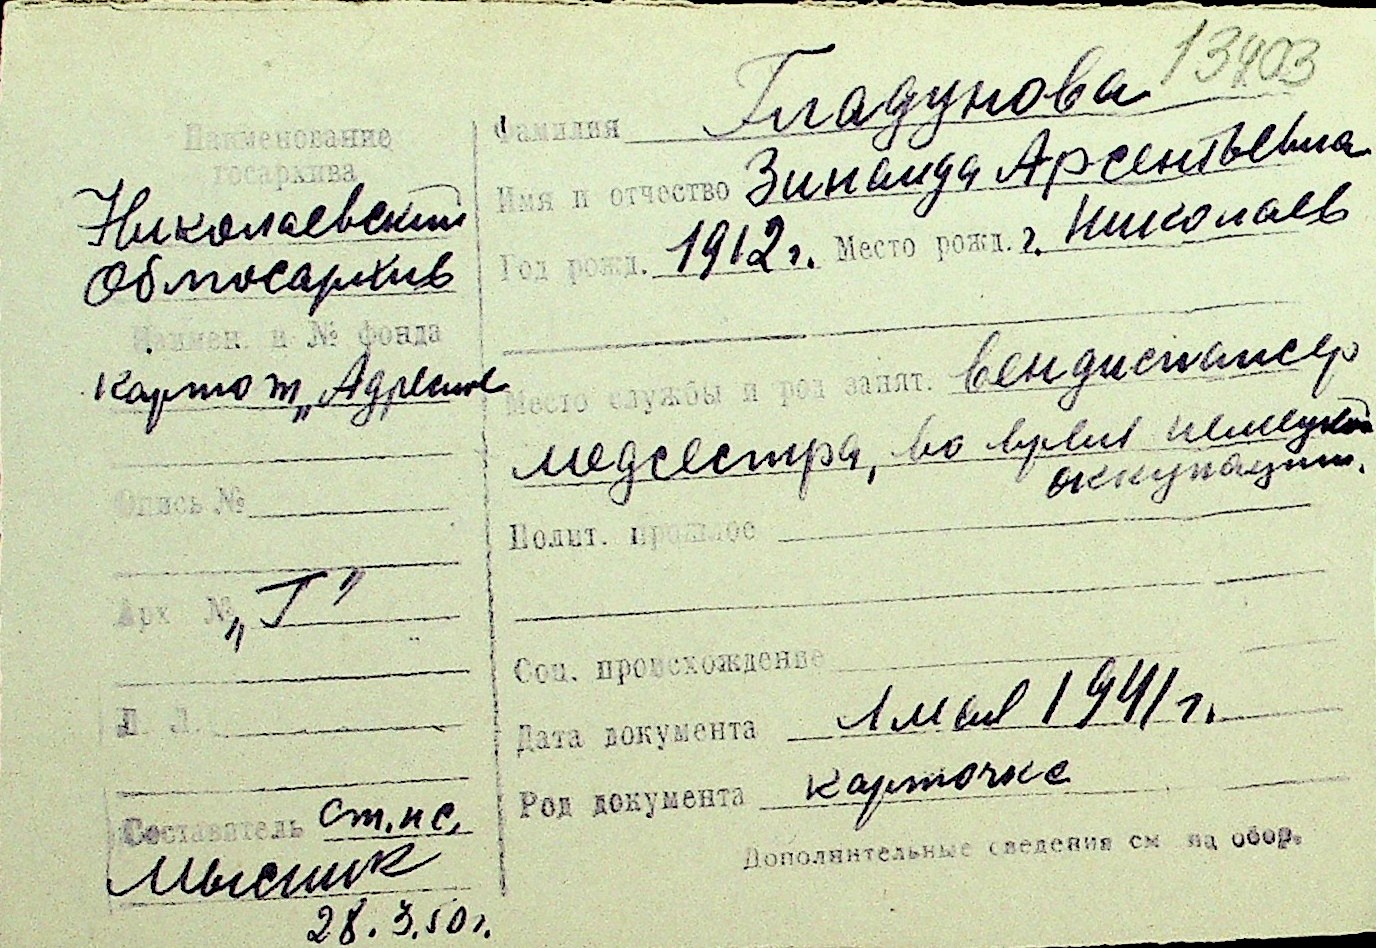 13403
Наименование
госархива
Николаевский
Облгосархив
Наимен. и № фонда
Картот „Адресные
Опись №
Арх № „Г"
Л. Л.
Составитель ст. нс.
28.3.50г.
Фамилия Гладунова
Имя и отчество Зинаида Арсентьевна
Год рожд. 1912г. Место рожд. г. Николаев
Место службы и род занят. Вендиспансер
медсестра, во время немецкой
оккупации.
Полит. прошлое
Соц. происхождение
Дата документа 1 мая 1941г.
Род документа карточке
Дополнительные сведения см на обор.